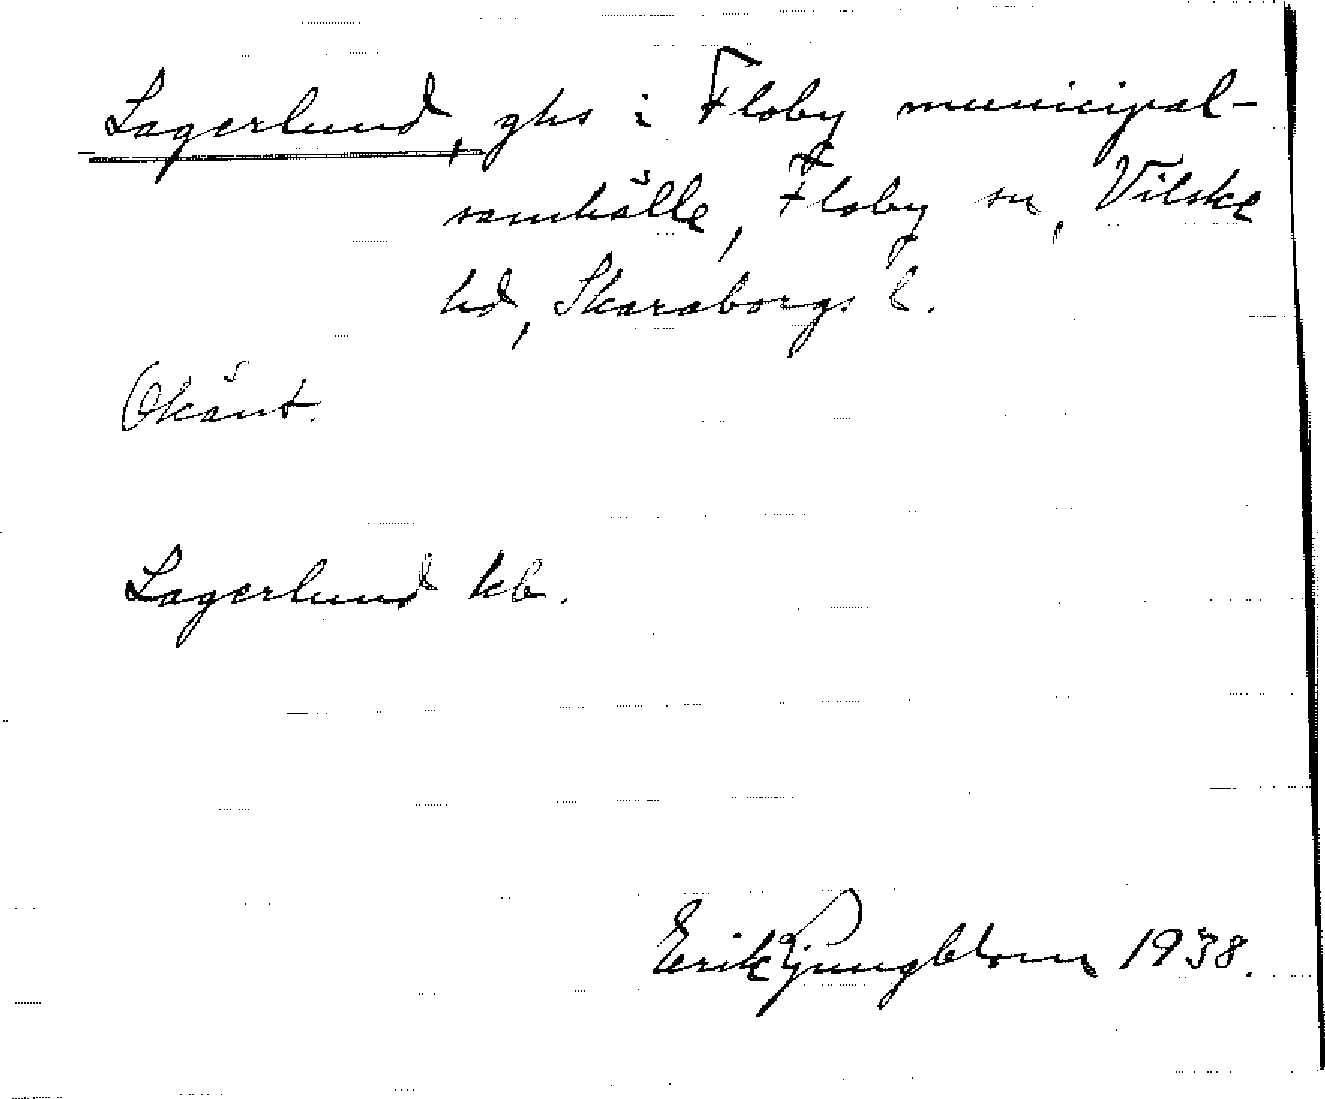 Lagerlund, ghs i Floby municipal-
samhälle, Floby sn, Vilske
hd, Skaraborgs l.
Okänt.
Lagerlund kb.
Erik Ljungblom 1938.